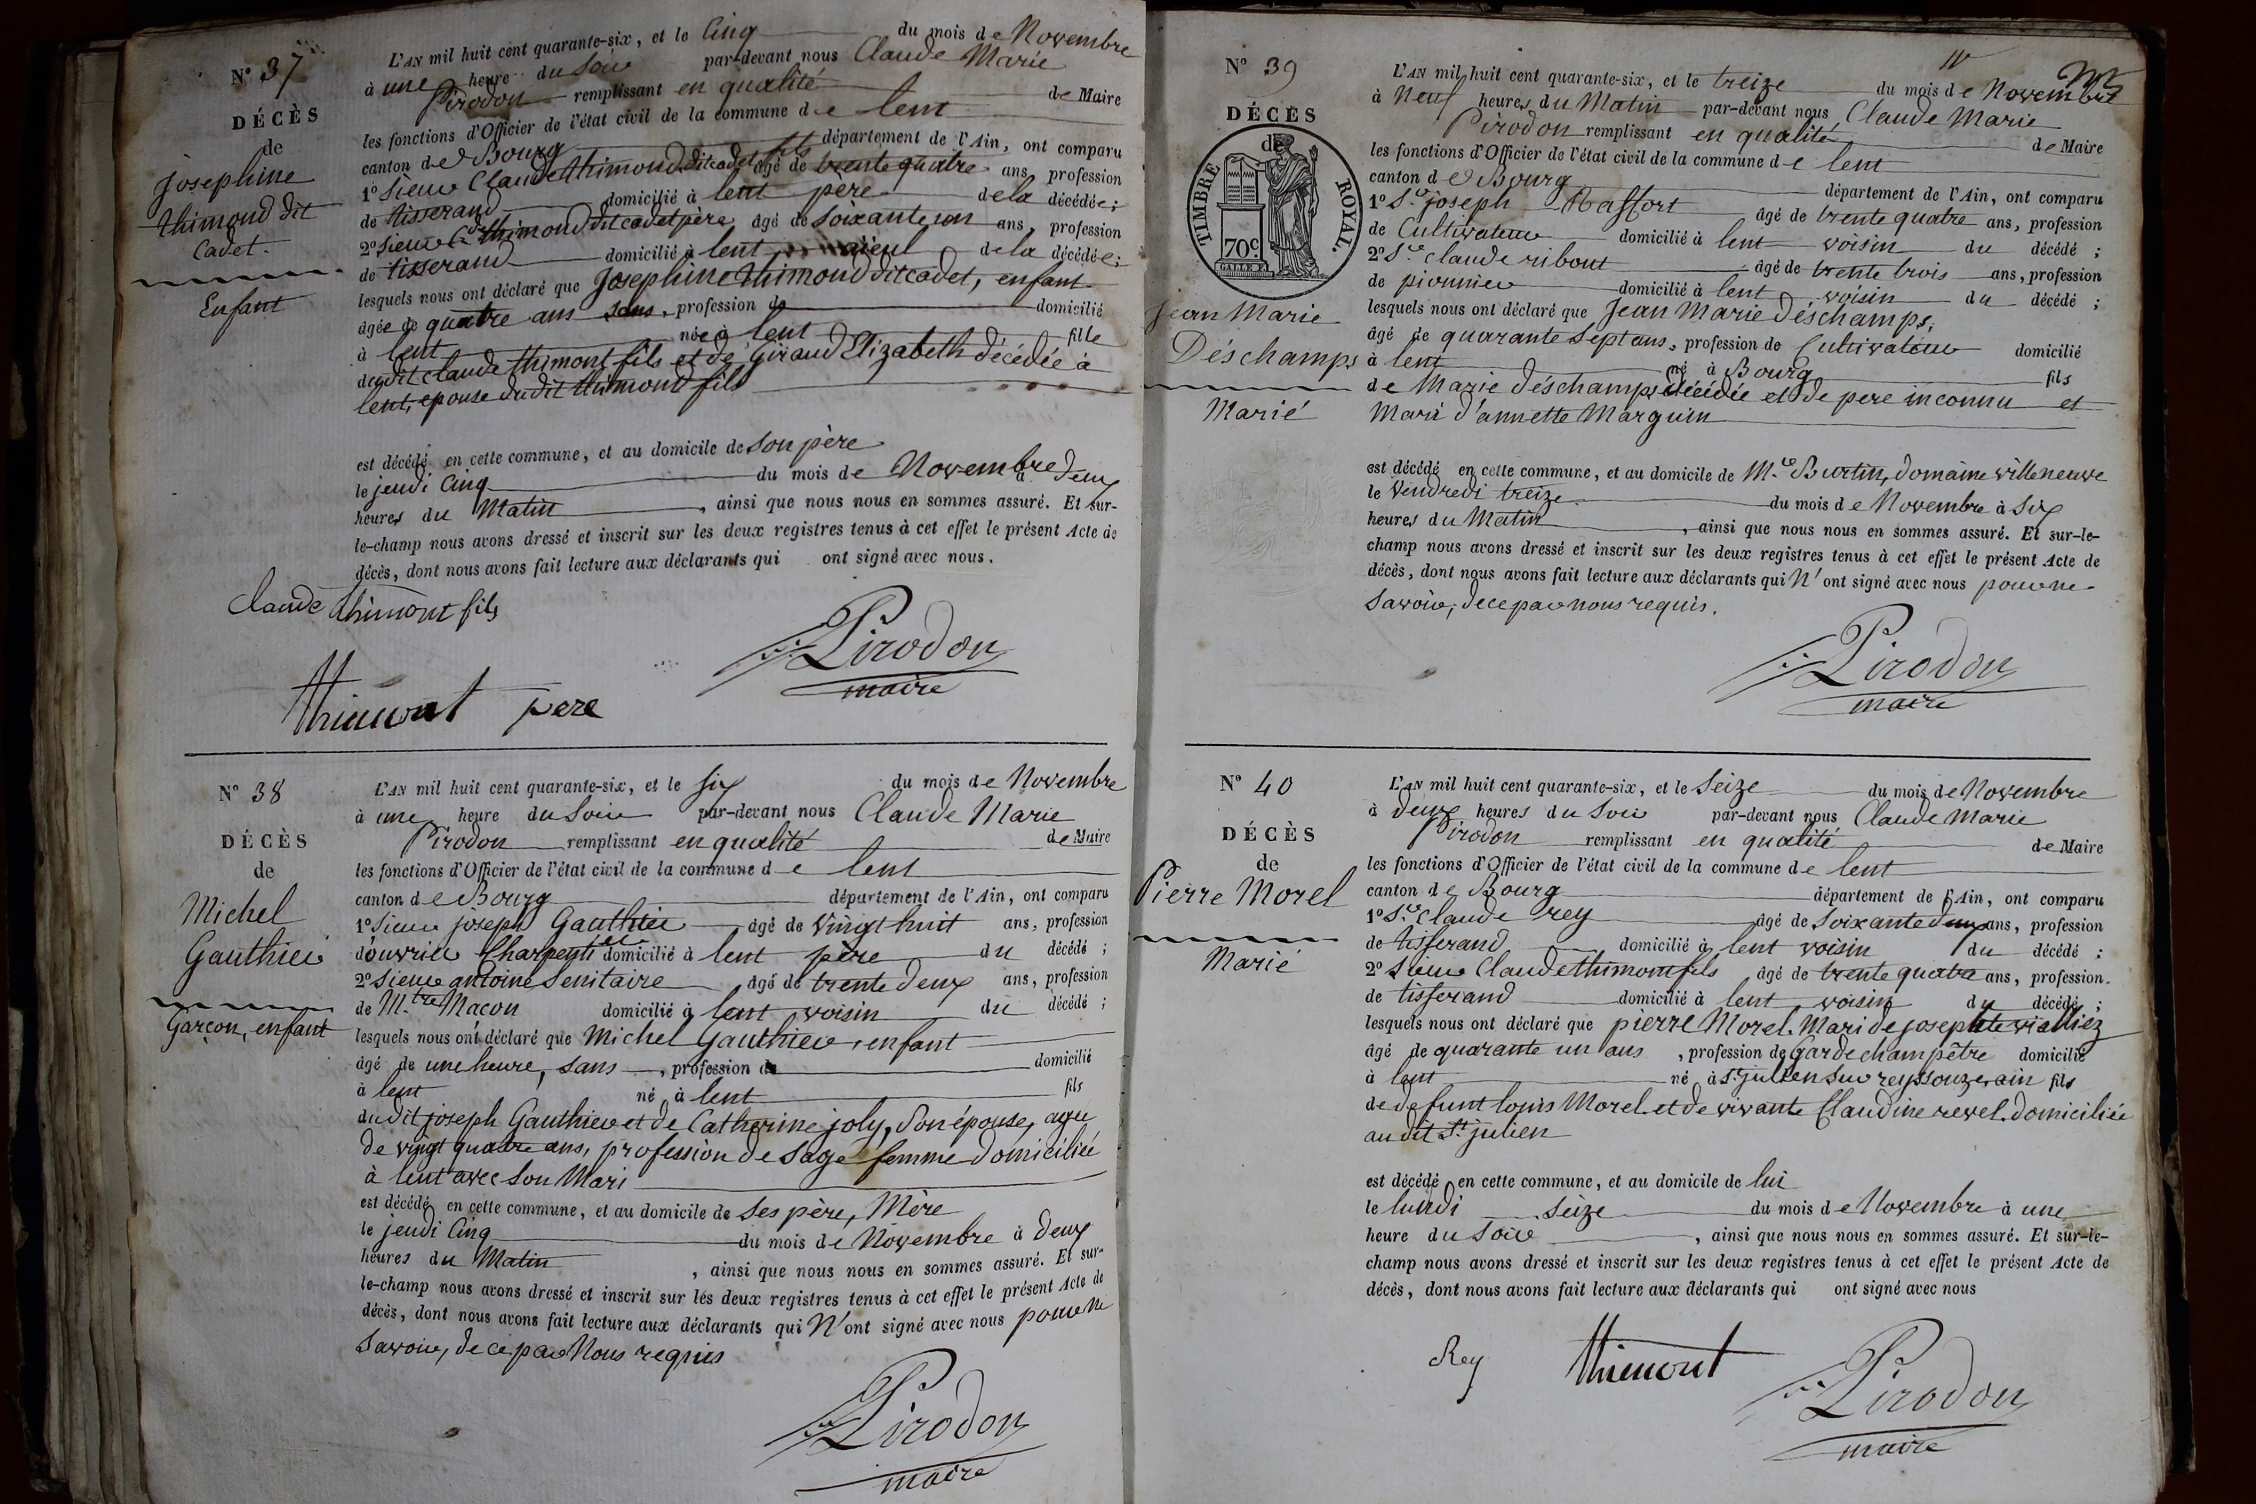 N° 37
DÉCÈS
de
Josephine
thimond dit
Cadet.
Enfant
L'AN mil huit cent quarante-six, et le Cinq du mois de Novembre
à une heure du Soir par-devant nous Claude Marie
Pirodon remplissant en qualité de Maire
les fonctions d'Officier de l'état civil de la commune de lent
canton de Bourg département de l'Ain, ont comparu
1° Sieur Claude thimond dit cadet fils âgé de trente quatre ans profession
de tisserand domicilié à lent père de la décédée;
2° Sieur Cde thimond dit cadet père âgé de Soixante un ans profession
de tisserand domicilié à lent aïeul de la décédée;
lesquels nous ont déclaré que Josephine thimond dit cadet, enfant
âgée de quatre ans sans, profession de domicilié
à lent née à lent fille
du dit claude thimont fils et de Giraud Elizabeth décédée à
lent, epouse du dit thimond fils
est décédé en cette commune, et au domicile de son père
le jeudi Cinq du mois de Novembre à deux
heures du Matin, ainsi que nous nous en sommes assuré. Et sur-
le-champ nous avons dressé et inscrit sur les deux registres tenus à cet effet le présent Acte de
décès, dont nous avons fait lecture aux déclarants qui ont signé avec nous.
Claude thimont fils
Pirodon
maire
thimont pere
N° 38
DÉCÈS
de
Michel
Gauthier
Garçon, enfant
L'AN mil huit cent quarante-six, et le six du mois de Novembre
à une heure du Soir par-devant nous Claude Marie
Pirodon remplissant en qualité de Maire
les fonctions d'Officier de l'état civil de la commune de lent
canton de Bourg département de l'Ain, ont comparu
1° Sieur joseph Gauthier âgé de Vingt huit ans, profession
d'ouvrier Charpentier domicilié à lent père du décédé;
2° Sieur antoine Senitaire âgé de trente deux ans, profession
de M.tre Macon domicilié à lent voisin du décédé;
lesquels nous ont déclaré que Michel Gauthier, enfant
âgé de une heure, sans, profession de domicilié
à lent né à lent fils
du dit joseph Gauthier et de Catherine joly, Son épouse, agée
de vingt quatre ans, profession de Sage femme domiciliée
à lent avec Son Mari
est décédé en cette commune, et au domicile de Ses père, Mère
le jeudi Cinq du mois de Novembre à deux
heures du Matin, ainsi que nous nous en sommes assuré. Et sur-
le-champ nous avons dressé et inscrit sur les deux registres tenus à cet effet le présent Acte de
décès, dont nous avons fait lecture aux déclarants qui N'ont signé avec nous pour ne
Savoir, de ce par Nous requis
Pirodon
maire
N° 39
DÉCÈS
de
TIMBRE ROYAL.
70c.
Jean Marie
Déschamps
Marié
L'AN mil huit cent quarante-six, et le treize du mois de Novembre
à Neuf heures du Matin par-devant nous Claude Marie
Pirodon remplissant en qualité de Maire
les fonctions d'Officier de l'état civil de la commune de lent
canton de Bourg département de l'Ain, ont comparu
1° S.r joseph Raffort âgé de trente quatre ans, profession
de Cultivateur domicilié à lent voisin du décédé;
2° S.r claude ribout âgé de trente trois ans, profession
de pionnier domicilié à lent voisin du décédé;
lesquels nous ont déclaré que Jean Marie déschamps,
âgé de quarante Sept ans, profession de Cultivateur domicilié
à lent né à Bourg fils
de Marie déschamps décédée et de pere inconnu et
Mari d'annette Marguin
est décédé en cette commune, et au domicile de M.r Burtin, domaine villeneuve
le Vendredi treize du mois de Novembre à Six
heures du Matin, ainsi que nous nous en sommes assuré. Et sur-le-
champ nous avons dressé et inscrit sur les deux registres tenus à cet effet le présent Acte de
décès, dont nous avons fait lecture aux déclarants qui N'ont signé avec nous pour ne
Savoir, de ce par nous requis.
Pirodon
maire
N° 40
DÉCÈS
de
Pierre Morel
Marié
L'AN mil huit cent quarante-six, et le Seize du mois de Novembre
à deux heures du Soir par-devant nous Claude Marie
Pirodon remplissant en qualité de Maire
les fonctions d'Officier de l'état civil de la commune de lent
canton de Bourg département de l'Ain, ont comparu
1° S.r Claude rey âgé de Soixante deux ans, profession
de tisserand domicilié à lent voisin du décédé;
2° Sieur Claude thimont fils âgé de trente quatre ans, profession
de tisserand domicilié à lent voisin du décédé;
lesquels nous ont déclaré que pierre Morel, Mari de josephte vialliez
âgé de quarante un ans, profession de Garde champêtre domicilié
à lent né à St julien Sur reyssouze, ain fils
de defunt louis Morel et de vivante Claudine revel domiciliée
au dit St julien
est décédé en cette commune, et au domicile de lui
le lundi Seize du mois de Novembre à une
heure du Soir, ainsi que nous nous en sommes assuré. Et sur-le-
champ nous avons dressé et inscrit sur les deux registres tenus à cet effet le présent Acte de
décès, dont nous avons fait lecture aux déclarants qui ont signé avec nous
Rey thimont Pirodon
maire